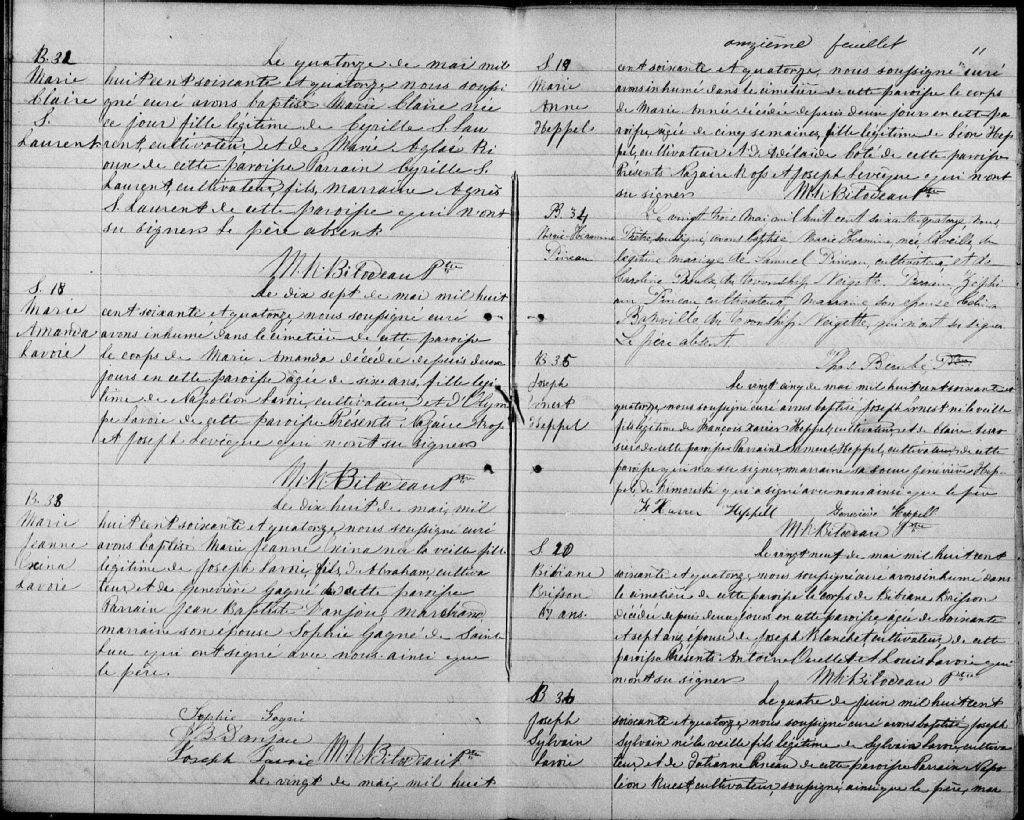 B. 32
Marie
Claire
S.
Laurent
Le quatorze de mai mil
huit cent soixante et quatorze nous soussi
gné curé avons baptisé Marie Claire née
ce jour fille légitime de Cyrille S. Lau
rent, cultivateur, et de Marie Aglaé Ri
oux de cette paroisse Parrain Cyrille S.
Laurent, cultivateur, fils, marraine Agnès
S. Laurent de cette paroisse qui n'ont
su signer. Le père absent
M. N. Bilodeau Ptre
S. 18
Marie
Amanda
Lavoie
Le dix sept de mai mil huit
cent soixante et quatorze nous soussigné curé
avons inhumé dans le cimetière de cette paroisse
le corps de Marie Amanda décédée depuis deux
jours en cette paroisse agée de six ans, fille légi
time de Napoléon Lavoie, cultivateur, et d'Olym
pe Lavoie de cette paroisse Présents Nazaire Ross
et Joseph Levêque qui n'ont su signer
M. N. Bilodeau Ptre
B. 33
Marie
Jeanne
Exina
Lavoie
Le dix huit de mai, mil
huit cent soixante et quatorze, nous soussigné curé
avons baptisé Marie Jeanne Exina née la veille fille
légitime de Joseph Lavoie, fils, d'Abraham, cultiva
teur, et de Geneviève Gagné de cette paroisse
Parrain Jean Baptiste Danjou, marchand
marraine son épouse Sophie Gagné de Saint
Luc qui ont signé avec nous ainsi que
le père.
Sophie Gagné
J. B. Danjou
Joseph Lavoie M. N. Bilodeau Ptre
Le vingt de mai, mil huit
onzième feuillet 11
S. 19
Marie
Anne
Heppel
cent soixante et quatorze, nous soussigné curé
avons inhumé dans le cimetière de cette paroisse le corps
de Marie Anne décédée depuis deux jours en cette pa
roisse, agée de cinq semaines, fille légitime de Léon Hep
pel, cultivateur et d'Adélaide Coté de cette paroisse
Présents Nazaire Ross et Joseph Levêque qui n'ont
su signer M. N. Bilodeau Ptre
B. 34
Marie Hermine
Pineau
Le vingt trois mai mil huit cent soixante quatorze, nous
Prêtre soussigné, avons baptisé Marie Hermine, née la veille, du
légitime mariage de Samuel Pineau, cultivateur, et de
Caroline du township Neigette. Parrain Zéphi
rin Pineau cultivateur, marraine son épouse
Banville du township Neigette, qui n'ont su signer
Le père absent.
B. 35
Joseph
Ernest
Heppel
Le vingt cinq de mai mil huit cent soixante et
quatorze, nous soussigné curé avons baptisé Joseph Ernest né la veille
fils légitime de François Xavier Heppel, cultivateur, et de Claire
de cette paroisse Parrain Samuel Heppel, cultivateur, de cette
paroisse qui n'a su signer, marraine sa soeur Geneviève Hep
pel, de Rimouski qui a signé avec nous ainsi que le père
F. Xavier Heppell Geneviève Heppell
M. N. Bilodeau Ptre
S. 20
Bibiane
Brisson
67 ans
Le vingt neuf de mai mil huit cent
soixante et quatorze, nous soussigné curé avons inhumé dans
le cimetière de cette paroisse le corps de Bibiane Brisson
décédée depuis deux jours en cette paroisse agée de soixante
et sept ans, épouse de Joseph Blanchet, cultivateur, de cette
paroisse Présents Antoine Ouellet et Louis Lavoie qui
n'ont su signer M. N. Bilodeau Ptre
B. 36
Joseph
Sylvain
Lavoie
Le quatre de juin mil huit cent
soixante et quatorze, nous soussigné curé avons baptisé Joseph
Sylvain né la veille fils légitime de Sylvain Lavoie, cultiva
teur, et de Pineau de cette paroisse Parrain Napo
léon Ruest, cultivateur, soussigné, ainsi que le père, mar